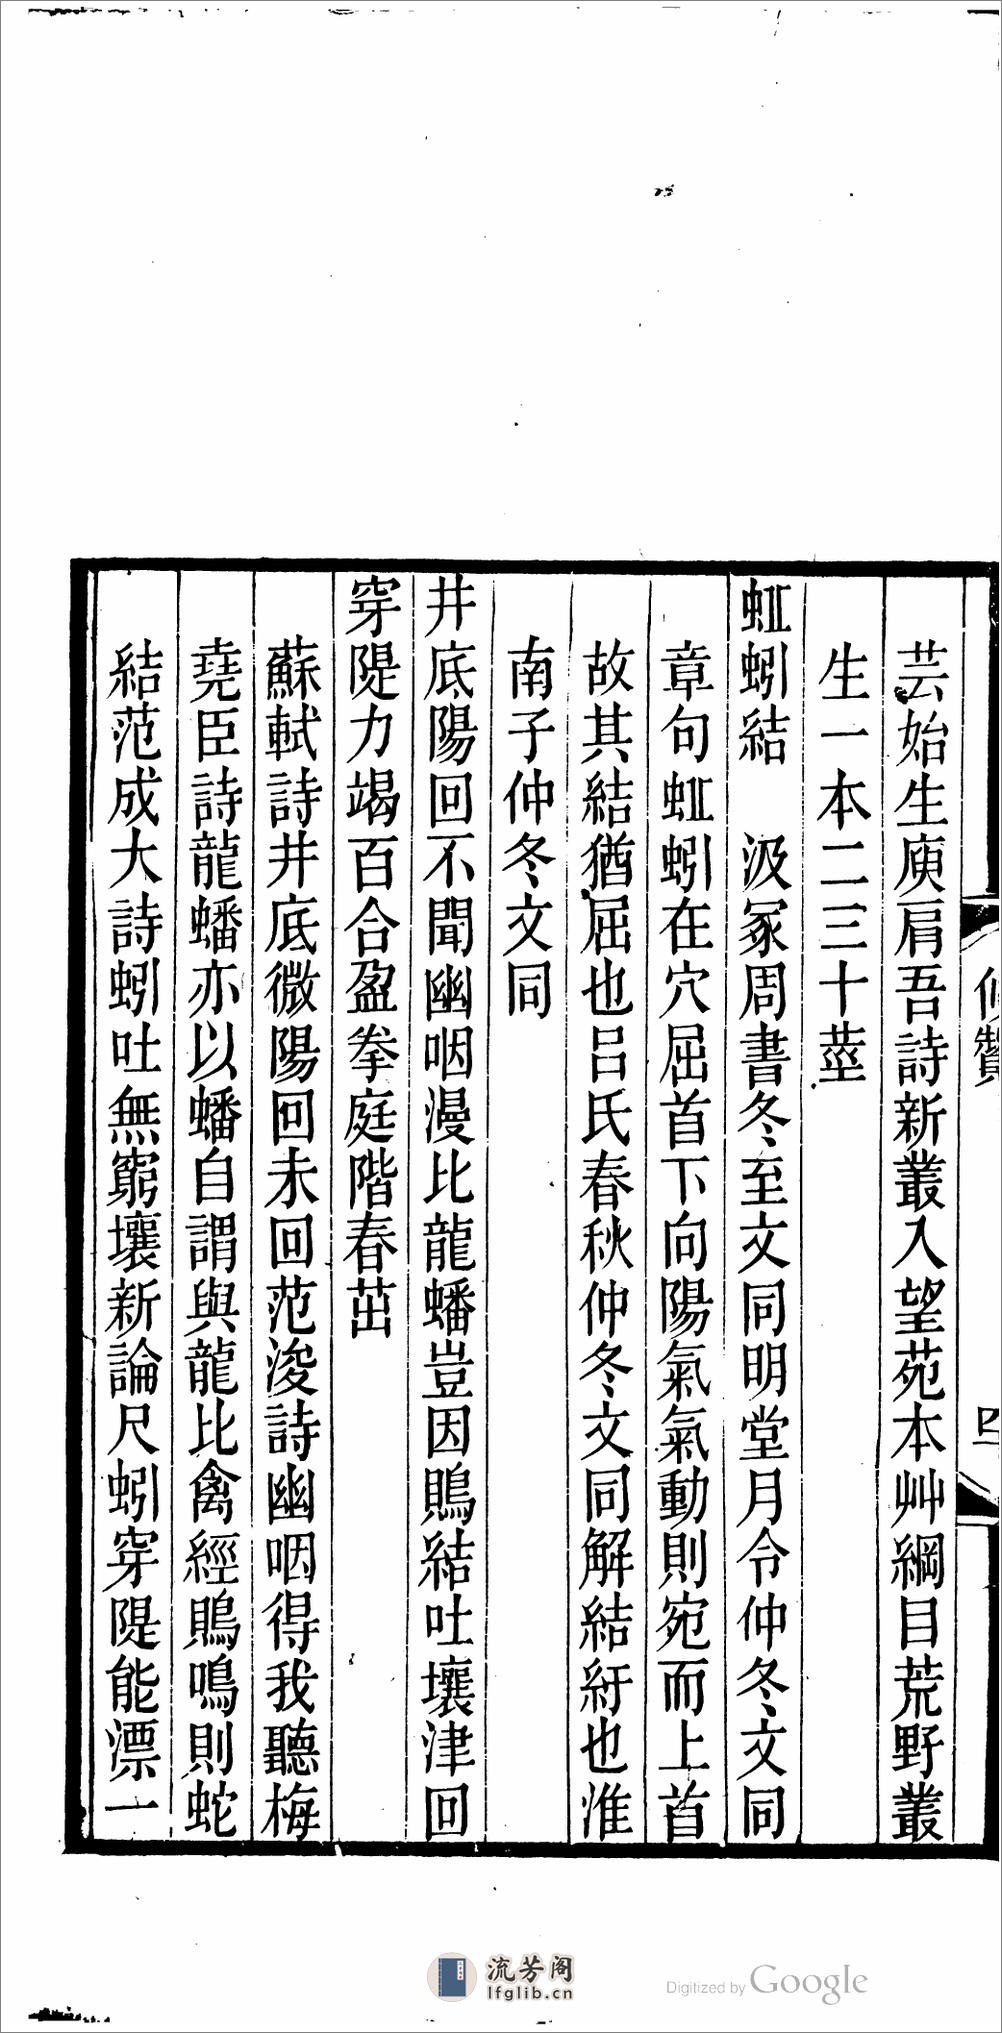 芸始生庾肩吾詩新叢入望苑本艸綱目荒野叢
生一本二三十莖
蚯蚓結　汲冢周書冬至文同明堂月令仲冬文同
章句蚯蚓在穴屈首下向陽氣氣動則宛而上首
故其結猶屈也呂氏春秋仲冬文同解結紆也淮
南子仲冬文同
井底陽回不聞幽咽漫比龍蟠豈因鴡結吐壤津回
穿隄力竭百合盈拳庭階春茁
蘇軾詩井底微陽回未回范浚詩幽咽得我聽梅
堯臣詩龍蟠亦以蟠自謂與龍比禽經鴡鳴則蛇
結范成大詩蚓吐無窮壤新論尺蚓穿隄能漂一
四
流芳阁
lfglib.cn
Digitized by Google